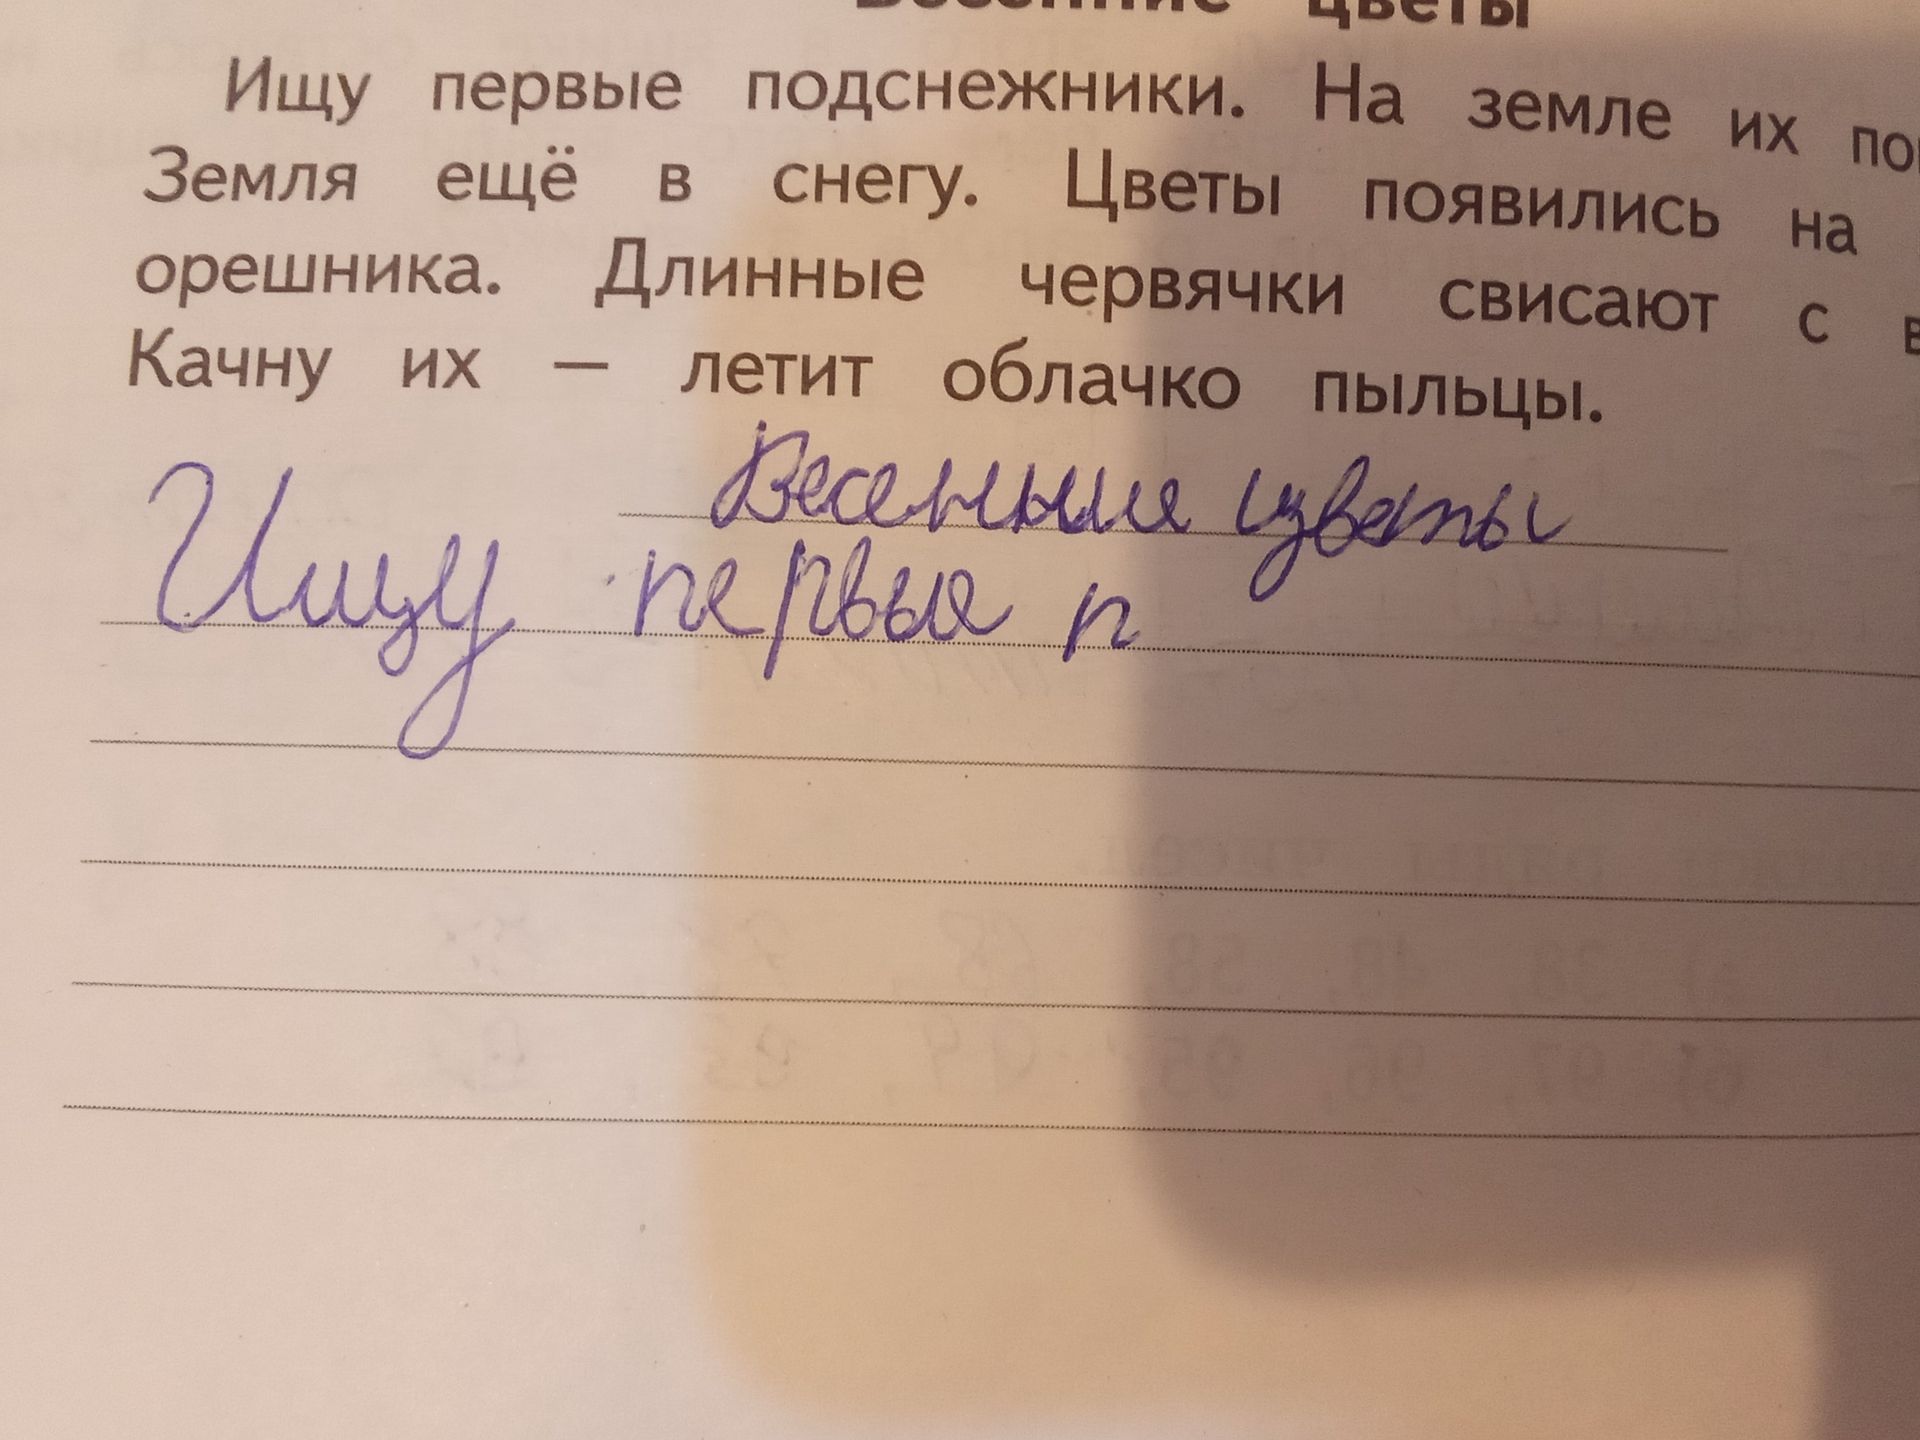 Весенние цветы
Ищу первые подснежники. На земле их
Земля ещё в снегу. Цветы появились на
орешника. Длинные червячки свисают с
Качну их — летит облачко пыльцы.
Весенние цветы
Ищу первые п